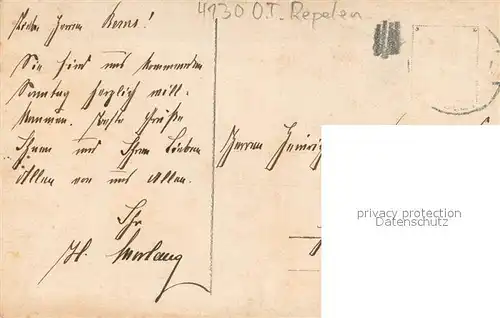 4130 O.T. Repelen
Herrn
Sie sind uns kommenden
Sonntag herzlich will-
kommen. Beste Grüße
Ihnen und Ihren Lieben
Allen von uns Allen.
Ihr
H.
Herren Heinrich
privacy protection
Datenschutz